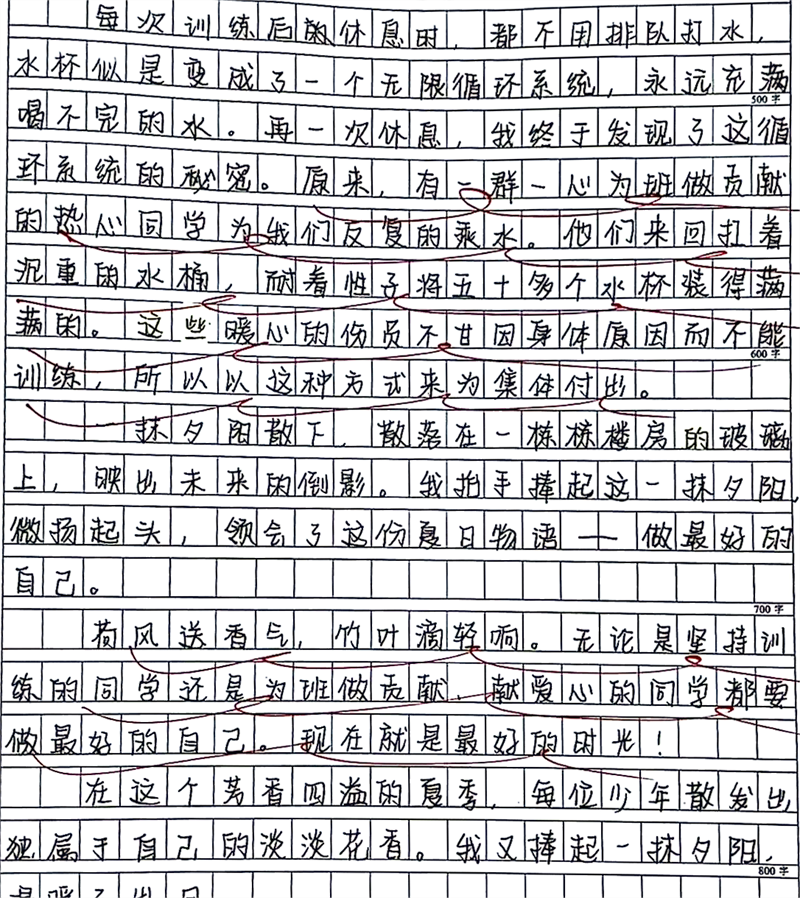 每次训练后的休息时，都不用排队打水，
水杯似是变成了一个无限循环系统，永远充满
500字
喝不完的水。再一次休息，我终于发现了这循
环系统的秘密。原来，有一群一心为班做贡献
的热心同学为我们反复的乘水。他们来回扛着
沉重的水桶，耐着性子将五十多个水杯装得满
满的。这些暖心的伤员不甘因身体原因而不能
600字
训练，所以以这种方式来为集体付出。
一抹夕阳散下，散落在一栋栋楼房的玻璃
上，映出未来的倒影。我抬手捧起这一抹夕阳，
微扬起头，领会了这份夏日物语——做最好的
自己。
700字
荷风送香气，竹叶滴轻响。无论是坚持训
练的同学还是为班做贡献、献爱心的同学都要
做最好的自己。现在就是最好的时光！
在这个芳香四溢的夏季，每位少年散发出
独属于自己的淡淡花香。我又捧起一抹夕阳，
800字